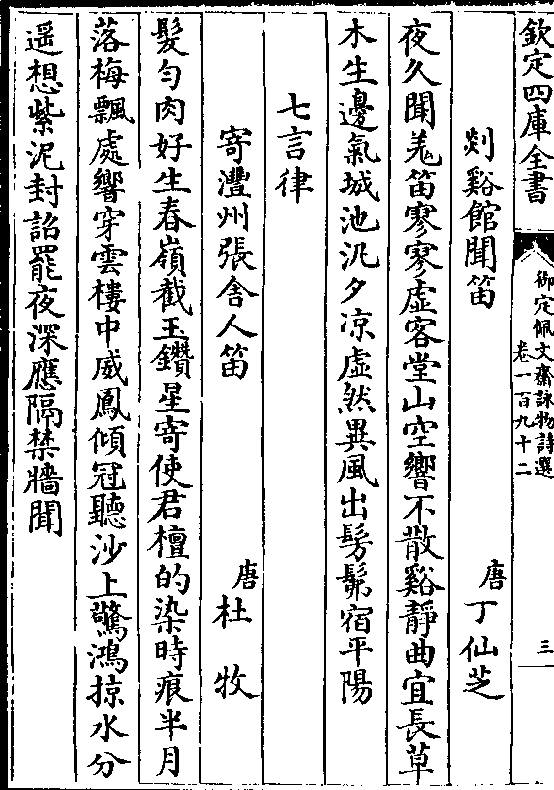 欽定四庫全書
御定佩文齋詠物詩選
卷一百九十二
三
剡谿館聞笛
唐
丁仙芝
夜久聞羗笛寥寥虛客堂山空響不散谿靜曲宜長草
木生邊氣城池汎夕凉虛然異風出髣髴宿平陽
七言律
寄灃州張舍人笛
唐
杜牧
髮勻肉好生春嶺截玉鑽星寄使君檀的染時痕半月
落梅飄處響穿雲樓中威鳳傾冠聽沙上驚鴻掠水分
遥想紫泥封詔罷夜深應隔禁牆聞